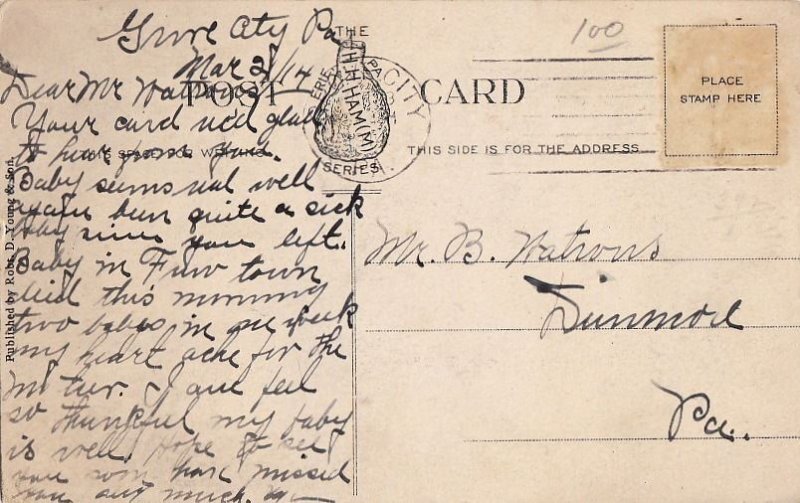 Grove City Pa
Mar 2/14
Dear Mr Watrous
Your card rec'd glad
to hear you
Baby seems well
again been quite a sick
baby since you left.
Baby in town
died this morning
two babes in one week
my heart ache for the
I feel
so thankful my baby
is well. Hope to see
you soon have missed
you very much.
THE
POST CARD
H-H-HAM(M)
SERIES
CITY
PA
THIS SIDE IS FOR THE ADDRESS
PLACE
STAMP HERE
100
Mr. B. Watrous
Dunmore
Pa.
Published by Robt. D. Young & Son.